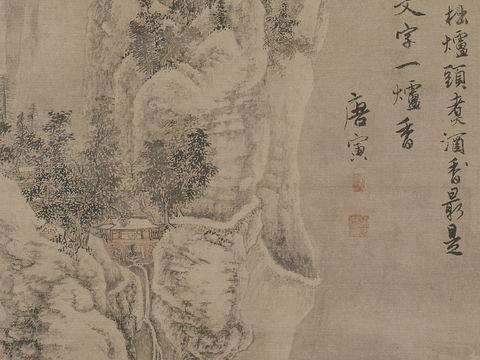 柮爐頭煮酒香最是
文字一爐香
唐寅